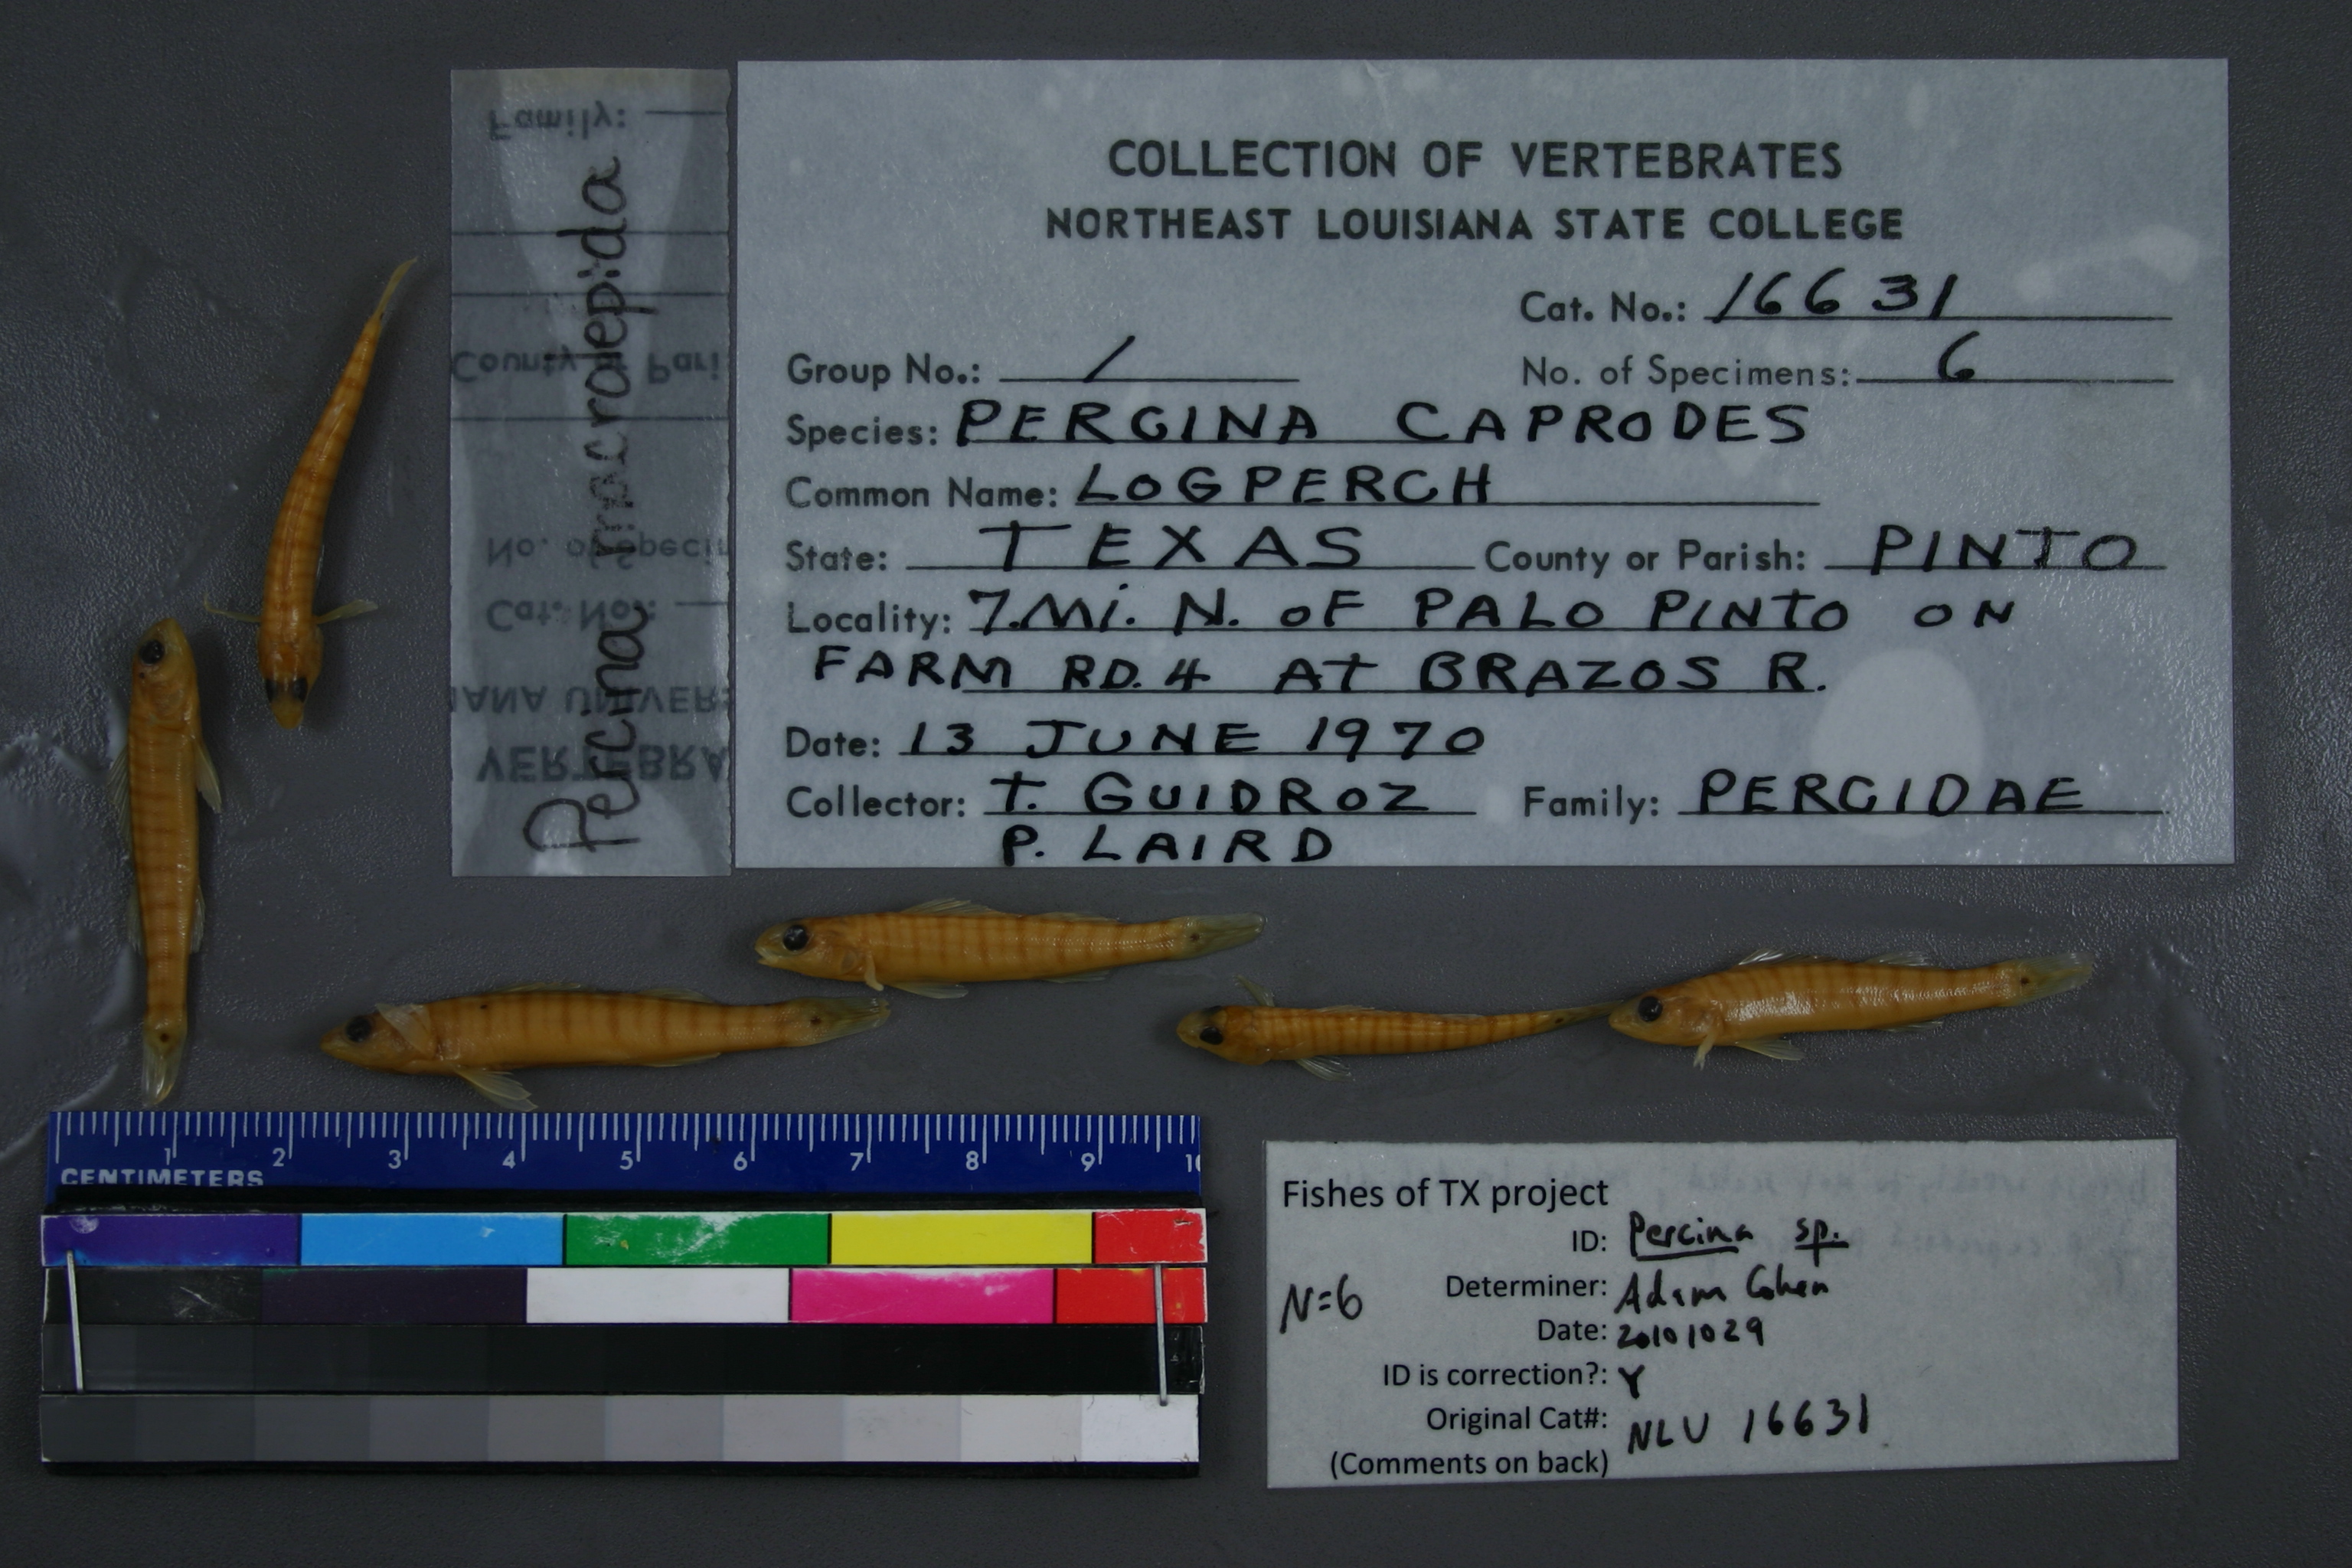 Percina macrolepida
Family:
County Pari
No. of Specim
Cat. No.:
IANA UNIVERS
VERTEBRA
COLLECTION OF VERTEBRATES
NORTHEAST LOUISIANA STATE COLLEGE
Cat. No.: 16631
Group No.: 1 No. of Specimens: 6
Species: PERCINA CAPRODES
Common Name: LOGPERCH
State: TEXAS County or Parish: PINTO
Locality: 7.Mi. N. OF PALO PINTO ON
FARM RD. 4 AT BRAZOS R.
Date: 13 JUNE 1970
Collector: T. GUIDROZ Family: PERCIDAE
P. LAIRD
1 2 3 4 5 6 7 8 9 10
CENTIMETERS
Fishes of TX project
ID: Percina sp.
N=6 Determiner: Adam Cohen
Date: 20101029
ID is correction?: Y
Original Cat#: NLU 16631
(Comments on back)